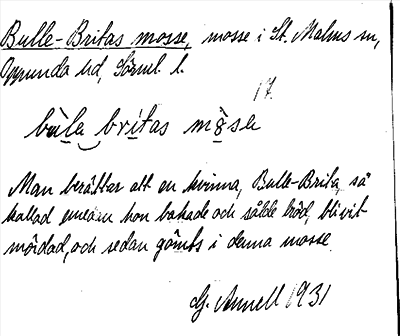 Bulle-Britas mosse, mosse i St. Malms sn,
Oppunda hd, Sörml. l.
17.
bùle britas mòsɐ
Man berättar att en kvinna, Bulle-Brita, så
kallad emedan hon bakade och sålde bröd, blivit
mördad, och sedan gömts i denna mosse.
G. Annell 1931